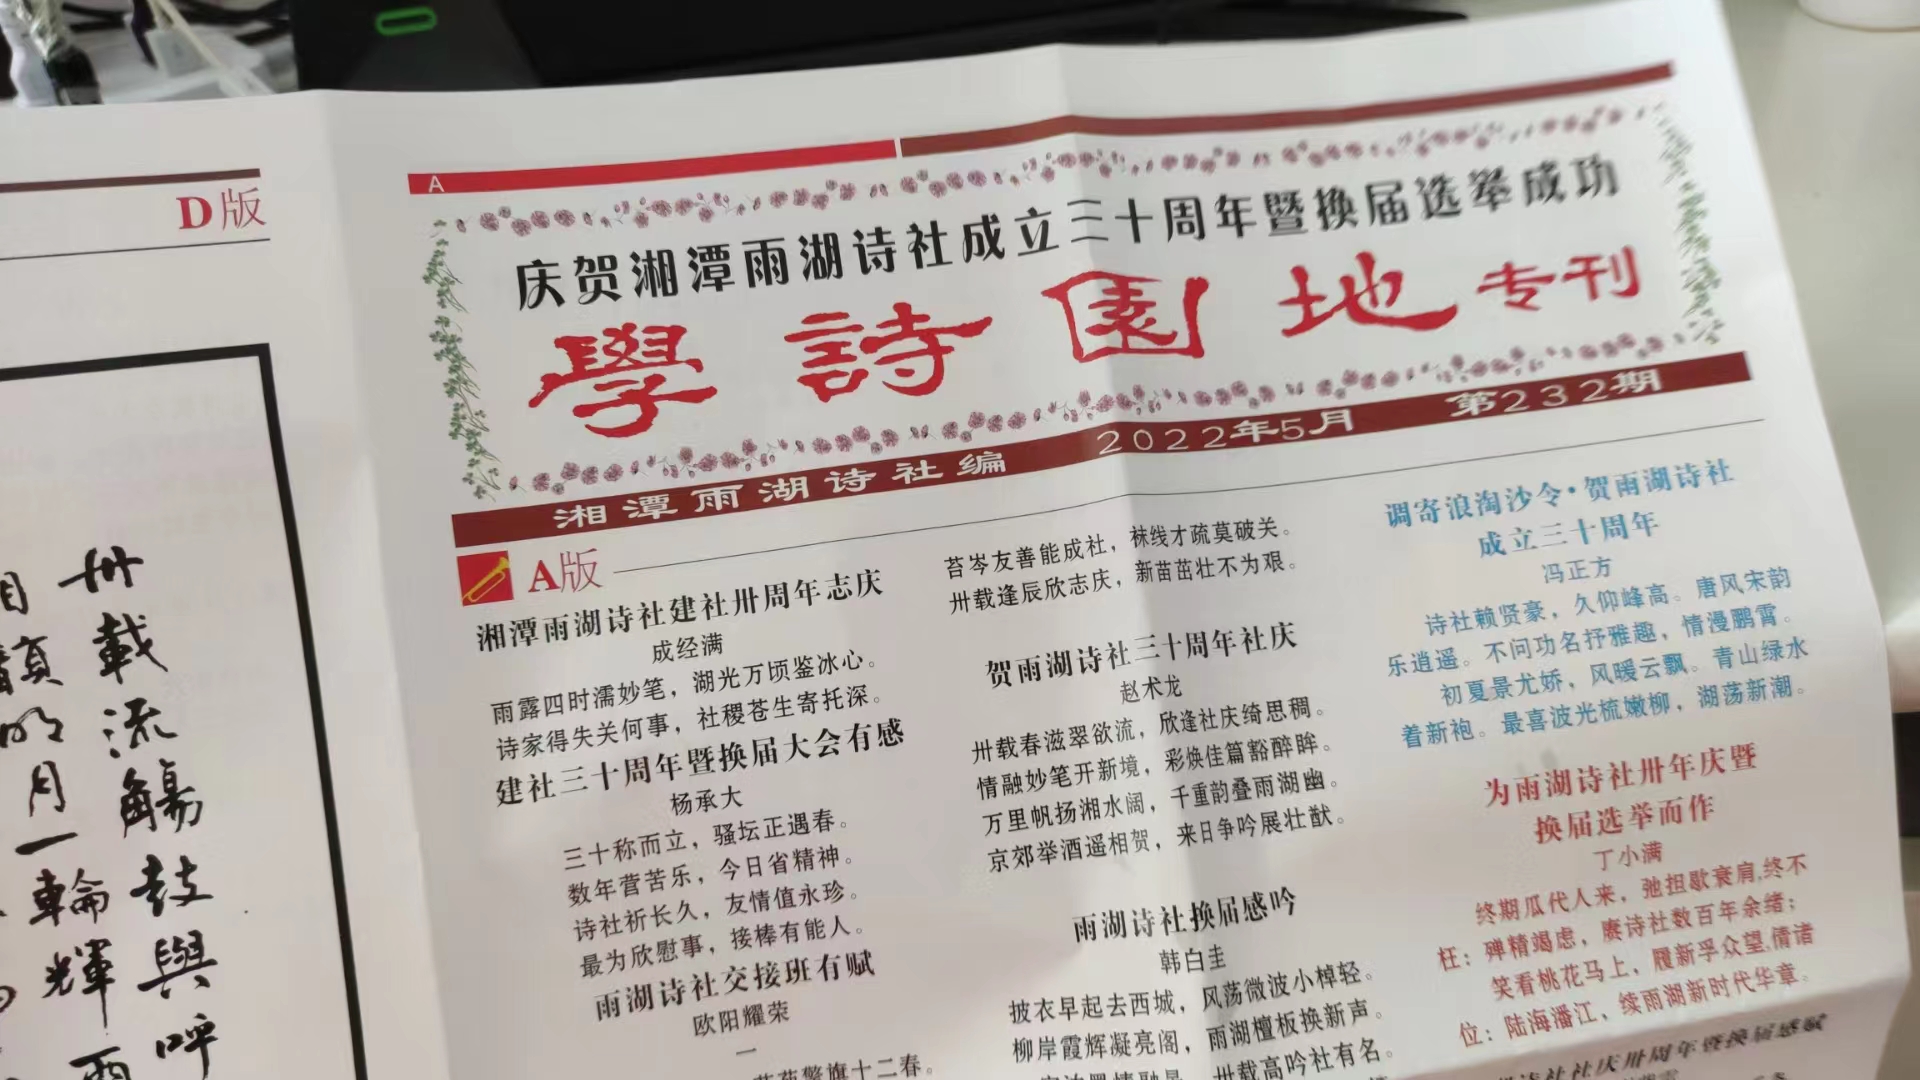 D版
卅載流觴鼓與呼
明月一輪輝
A
庆贺湘潭雨湖诗社成立三十周年暨换届选举成功
學詩園地专刊
湘潭雨湖诗社编 2022年5月 第232期
A版
湘潭雨湖诗社建社卅周年志庆
成经满
雨露四时濡妙笔，湖光万顷鉴冰心。
诗家得失关何事，社稷苍生寄托深。
建社三十周年暨换届大会有感
杨承大
三十称而立，骚坛正遇春。
数年营苦乐，今日省精神。
诗社祈长久，友情值永珍。
最为欣慰事，接棒有能人。
雨湖诗社交接班有赋
欧阳耀荣
一
十二春。
苔岑友善能成社，袜线才疏莫破关。
卅载逢辰欣志庆，新苗茁壮不为艰。
贺雨湖诗社三十周年社庆
赵术龙
卅载春滋翠欲流，欣逢社庆绮思稠。
情融妙笔开新境，彩焕佳篇豁醉眸。
万里帆扬湘水阔，千重韵叠雨湖幽。
京郊举酒遥相贺，来日争吟展壮猷。
雨湖诗社换届感吟
韩白圭
披衣早起去西城，风荡微波小棹轻。
柳岸霞辉凝亮阁，雨湖檀板换新声。
卅载高吟社有名。
调寄浪淘沙令·贺雨湖诗社
成立三十周年
冯正方
诗社赖贤豪，久仰峰高。唐风宋韵
乐逍遥。不问功名抒雅趣，情漫鹏霄。
初夏景尤娇，风暖云飘。青山绿水
着新袍。最喜波光梳嫩柳，湖荡新潮。
为雨湖诗社卅年庆暨
换届选举而作
丁小满
终期瓜代人来，弛担歇衰肩,终不
枉：殚精竭虑，赓诗社数百年余绪；
笑看桃花马上，履新孚众望,倩诸
位：陆海潘江，续雨湖新时代华章。
诗社社庆卅周年暨换届感赋